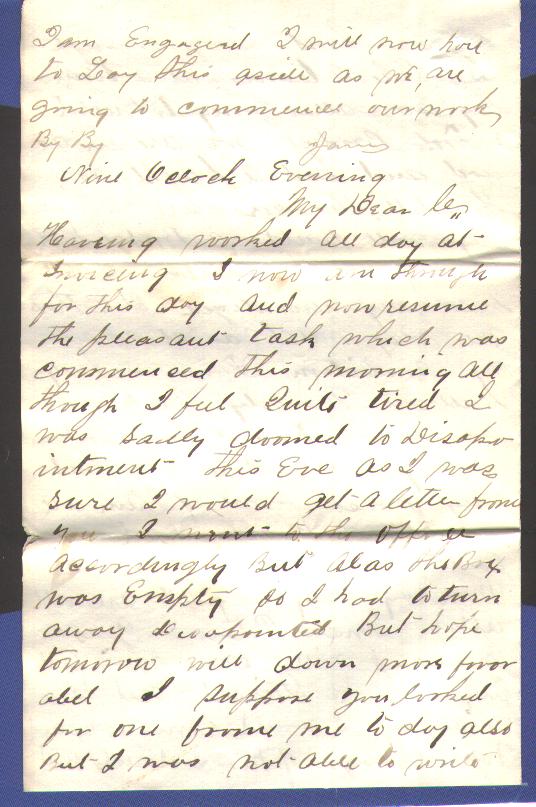 I am Engagerd I will now have
to Lay this aside as we are
going to commence our work
By By
Nine Oclock Evening
My Dear
Haveing worked all day at
Invoicing I now am through
for this day and now resume
the pleasant task which was
commensed this morning all
though I feel Quite tired I
was sadly doomed to Disapo
intment this Eve as I was
sure I would get a letter from
you I went to the Office
accordingly But alas the Box
was Empty so I had to turn
away disapointed But hope
tomorow will down more favor
abel I suppose you looked
for one frome me to day also
But I was not able to write